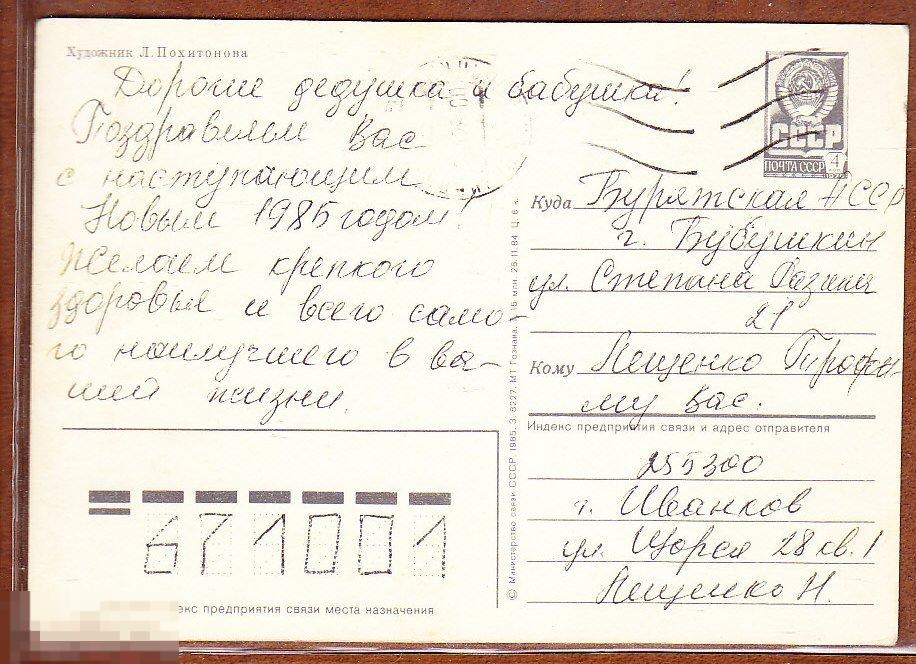 Художник Л. Похитонова
Дорогие дедушка и бабушка!
Поздравляем Вас
с наступающим
Новым 1985 годом!
Желаем крепкого
здоровья и всего само-
го наилучшего в ва-
шей жизни.
СССР
ПОЧТА СССР 4
Куда Бурятская АССР
г. Бабушкин
ул. Степана Разина
21
Кому Лещенко Трофи-
му Вас.
Индекс предприятия связи и адрес отправителя
255300
г. Иванков
ул. Щорса 28 кв. 1
Лещенко Н.
671001
декс предприятия связи места назначения
© Министерство связи СССР. 1985. З. 8227. МТ Гознака. 15 млн. 26.11.84. Ц. 6 к.